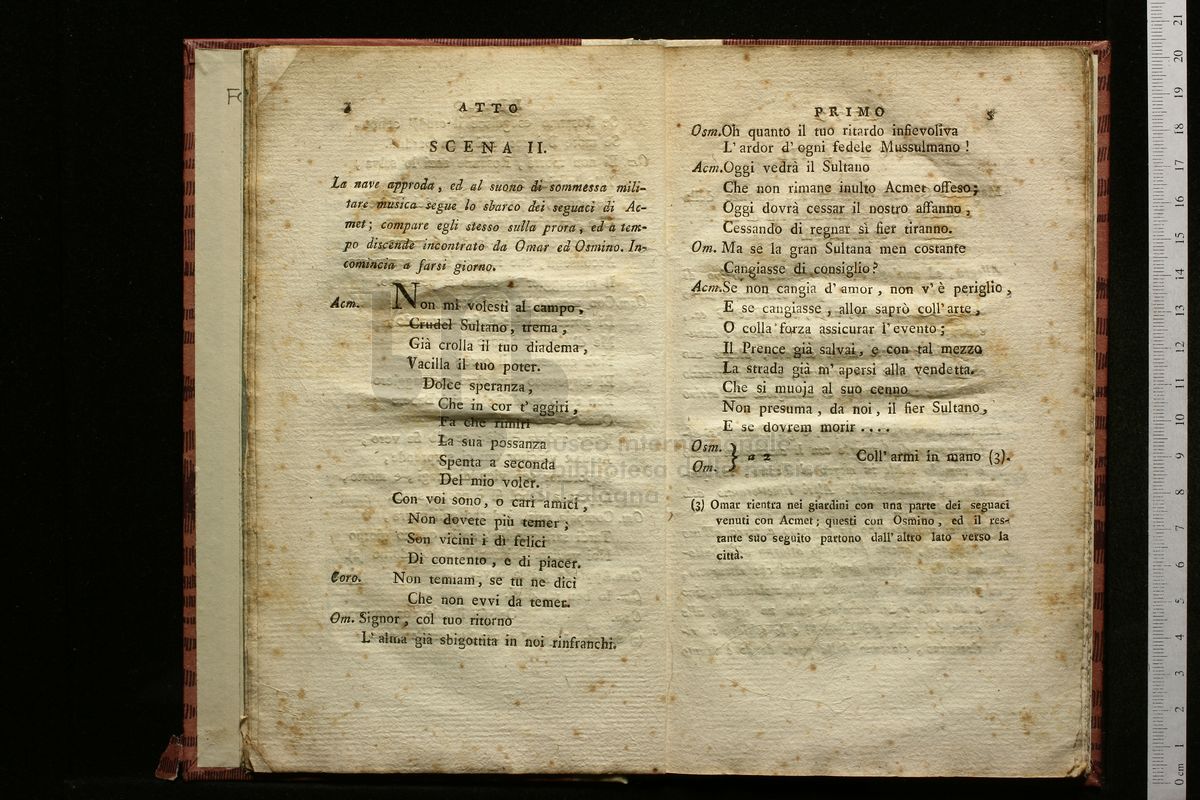 3 ATTO
SCENA II.
La nave approda, ed al suono di sommessa mili-
tare musica segue lo sbarco dei seguaci di Ac-
met; compare egli stesso sulla prora, ed a tem-
po discende incontrato da Omar ed Osmino. In-
comincia a farsi giorno.
Acm. Non mi volesti al campo,
Crudel Sultano, trema,
Già crolla il tuo diadema,
Vacilla il tuo poter.
Dolce speranza,
Che in cor t' aggiri,
Fa che rimiri
La sua possanza
Spenta a seconda
Del mio voler.
Con voi sono, o cari amici,
Non dovete più temer;
Son vicini i dì felici
Di contento, e di piacer.
Coro. Non temiam, se tu ne dici
Che non evvi da temer.
Om. Signor, col tuo ritorno
L' alma già sbigottita in noi rinfranchi.
PRIMO 5
Osm. Oh quanto il tuo ritardo infievoliva
L' ardor d' ogni fedele Mussulmano!
Acm. Oggi vedrà il Sultano
Che non rimane inulto Acmet offeso;
Oggi dovrà cessar il nostro affanno,
Cessando di regnar sì fier tiranno.
Om. Ma se la gran Sultana men costante
Cangiasse di consiglio?
Acm. Se non cangia d' amor, non v' è periglio,
E se cangiasse, allor saprò coll' arte,
O colla forza assicurar l' evento;
Il Prence già salvai, e con tal mezzo
La strada già m' apersi alla vendetta.
Che si muoja al suo cenno
Non presuma, da noi, il fier Sultano,
E se dovrem morir ....
Osm.
Om. } a 2 Coll' armi in mano (3).
(3) Omar rientra nei giardini con una parte dei seguaci
venuti con Acmet; questi con Osmino, ed il res-
tante suo seguito partono dall' altro lato verso la
città.
museo internazionale
biblioteca della musica
bologna